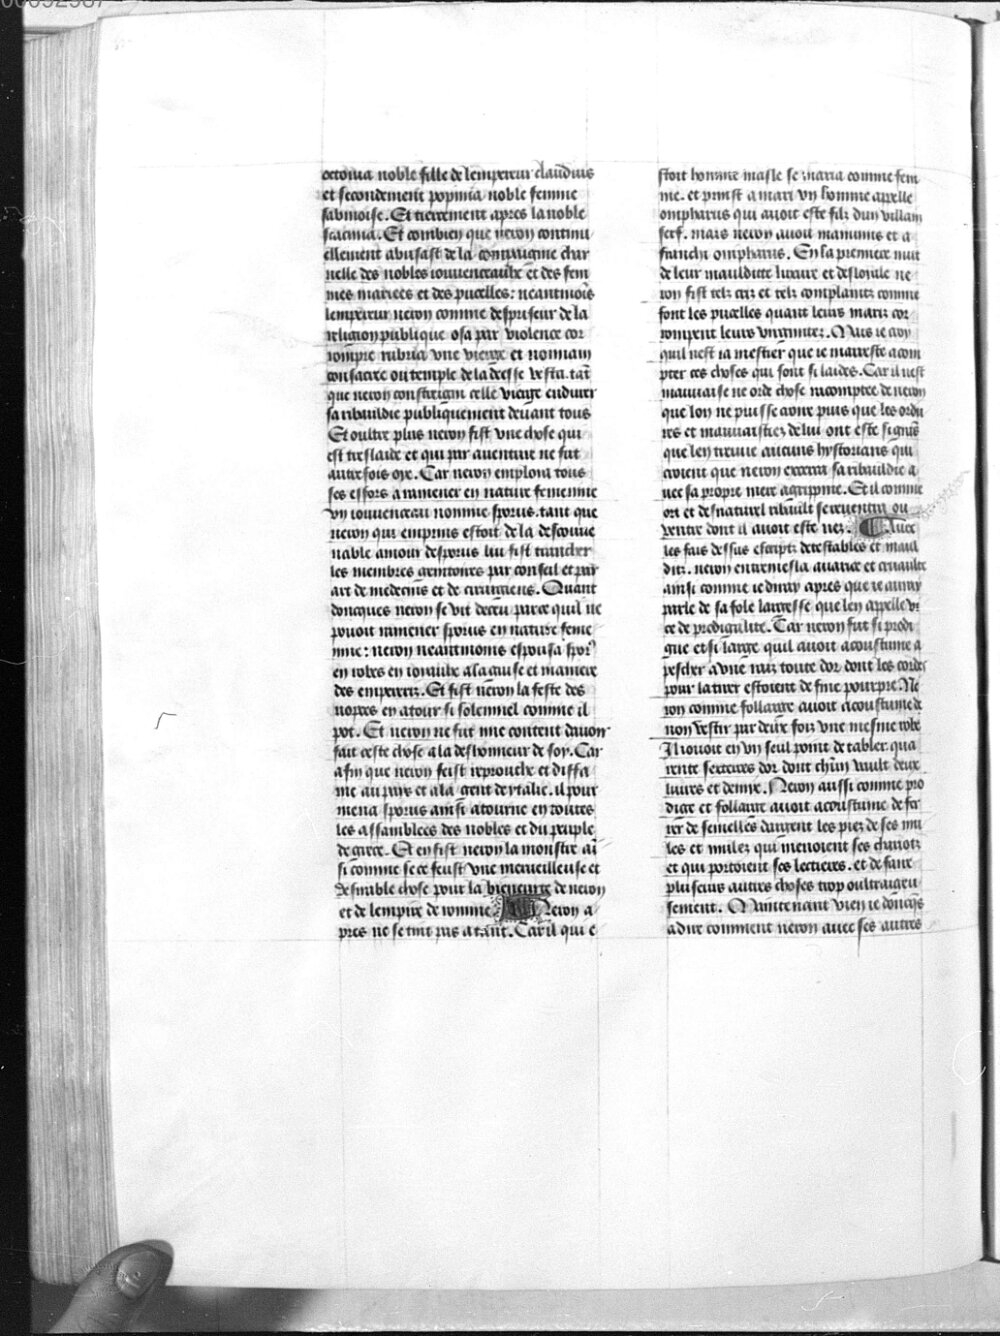 octouia noble fille de lempereur claudius
et secondement popinia noble femme
sabinoise. Et tiercement apres la noble
stacinia. Et combien que neron continu
ellement abusast de la compaignie char
nelle des nobles iouuenceaulx et des fem
mes mariees et des pucelles: neantmoĩs
lempereur neron comme despriseur de la
religion publique osa par violence cor
rompre rubria vne vierge et nonnain
consacree ou temple de la deesse vesta. tãt
que neron constraigni celle vierge endurer
sa ribauldie publiquement deuant tous
Et oultre plus neron fist vne chose qui
est treslaide et qui par auenture ne fut
autresfois oye. Car neron emploia tous
ses effors a ramener en nature femenine
vn iouuenceau nomme sporus. tant que
neron qui emprins estoit de la desconue
nable amour desporus lui fist trancher
les membres genitoires par conseil et par
art de medecins et de cirurgiens. Quant
doncques neron se vit deceu parce quil ne
pouoit ramener sporus en nature feme
nine: neron neantmoins espousa spor
en robes en ioyaulx a la guise et maniere
des empereriz. Et fist neron la feste des
nopces en atour si solennel comme il
pot. Et neron ne fut mie content dauoir
fait ceste chose a la deshonneur de soy. Car
afin que neron feist reprouche et diffa
me au pays et a la gent dytalie. il pour
mena sporus ainsi atourne en toutes
les assamblees des nobles et du peuple
de grece. Et en fist neron la monstre aĩ
si comme se ce feust vne merueilleuse et
desirable chose pour la bieneurte de neron
et de lempire de romme. Neron a
pres ne se tint pas a tant. Car il qui e
stoit homme masle se maria comme fem
me. et prinst a mari vn homme appelle
ompharus qui auoit este filz dun villain
serf. mais neron auoit manumis et a
franchi ompharus. En la premiere nuit
de leur mauldite luxure et desloyale ne
ron fist telz criz et telz complaintz comme
font les pucelles quant leurs mariz cor
rompent leurs virginitez. Mais ie croy
quil nest ia mestier que ie marreste a com
pter ces choses qui sont si laides. Car il nest
mauuaise ne orde chose racomptee de neron
que lon ne puisse croire puis que les ordu
res et mauuaistiez de lui ont este si grãs
que len treuue aucuns hystorians qui
croient que neron excerca sa ribauldie a
uec sa propre mere agrippine. Et il comme
ort et desnaturel ribault se reuentra ou
ventre dont il auoit este nez. Auec
les fais dessus escriptz detestables et maul
diz. neron entremesla auarice et cruaulte
ainsi comme ie diray apres que ie auray
parle de sa fole largesse que len appelle vi
ce de prodigalite. Car neron fut si prodi
gue et si large quil auoit acoustume a
pescher a vne raiz toute dor dont les cordes
pour la tirer estoient de fine pourpre. Ne
ron comme follastre auoit acoustume de
non vestir par deux fois vne mesme robe
Il iouoit en vn seul point de tablez qua
rente sexterces dor dont chũn vault deux
liures et demie. Neron aussi comme pro
dige et follastre auoit acoustume de fer
rer de semelles dargent les piez de ses mu
les et mulez qui menoient ses chariotz
et qui portoient ses lectieres. et de faire
pluseurs autres choses trop oultraigeu
sement. Maintenant vien ie doncq̃s
a dire comment neron auec ses autres